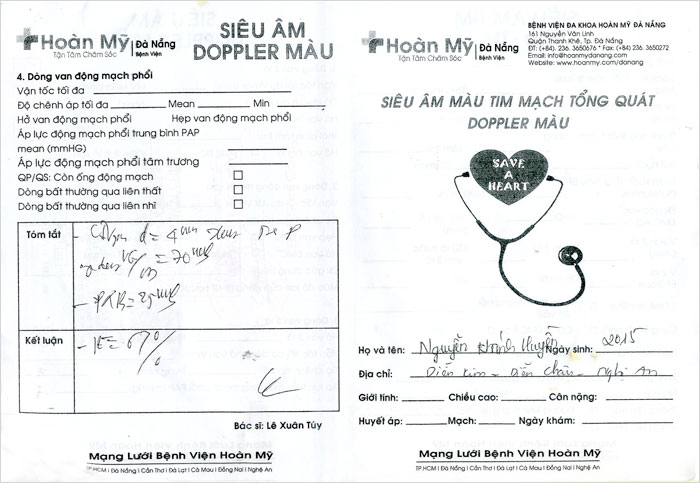 Hoàn Mỹ Đà Nẵng
Bệnh viện
Tận Tâm Chăm Sóc
SIÊU ÂM
DOPPLER MÀU
4. Dòng van động mạch phổi
Vận tốc tối đa
Độ chênh áp tối đa Mean Min
Hở van động mạch phổi Hẹp van động mạch phổi
Áp lực động mạch phổi trung bình PAP
mean (mmHG)
Áp lực động mạch phổi tâm trương
QP/QS: Còn ống động mạch
Dòng bất thường qua liên thất
Dòng bất thường qua liên nhĩ
Tóm tắt
d = 4 mm
= 70
Kết luận
Bác sĩ: Lê Xuân Túy
Mạng Lưới Bệnh Viện Hoàn Mỹ
TP.HCM I Đà Nẵng I Cần Thơ I Đà Lạt I Cà Mau I Đồng Nai I Nghệ An
Hoàn Mỹ Đà Nẵng
Bệnh viện
Tận Tâm Chăm Sóc
BỆNH VIỆN ĐA KHOA HOÀN MỸ ĐÀ NẴNG
161 Nguyễn Văn Linh
Quận Thanh Khê, Tp. Đà Nẵng
ĐT: (+84) 236. 3650676 * Fax: (+84) 236. 3650272
Email: contactus.danang@hoanmy.com
Website: www.hoanmy.com/danang
SIÊU ÂM MÀU TIM MẠCH TỔNG QUÁT
DOPPLER MÀU
SAVE
A
HEART
Họ và tên: Nguyễn Khánh Huyền Ngày sinh: 2015
Địa chỉ: Diễn Kim - Diễn Châu - Nghệ An
Giới tính: Chiều cao: Cân nặng:
Huyết áp: Mạch: Ngày khám:
Mạng Lưới Bệnh Viện Hoàn Mỹ
TP.HCM I Đà Nẵng I Cần Thơ I Đà Lạt I Cà Mau I Đồng Nai I Nghệ An